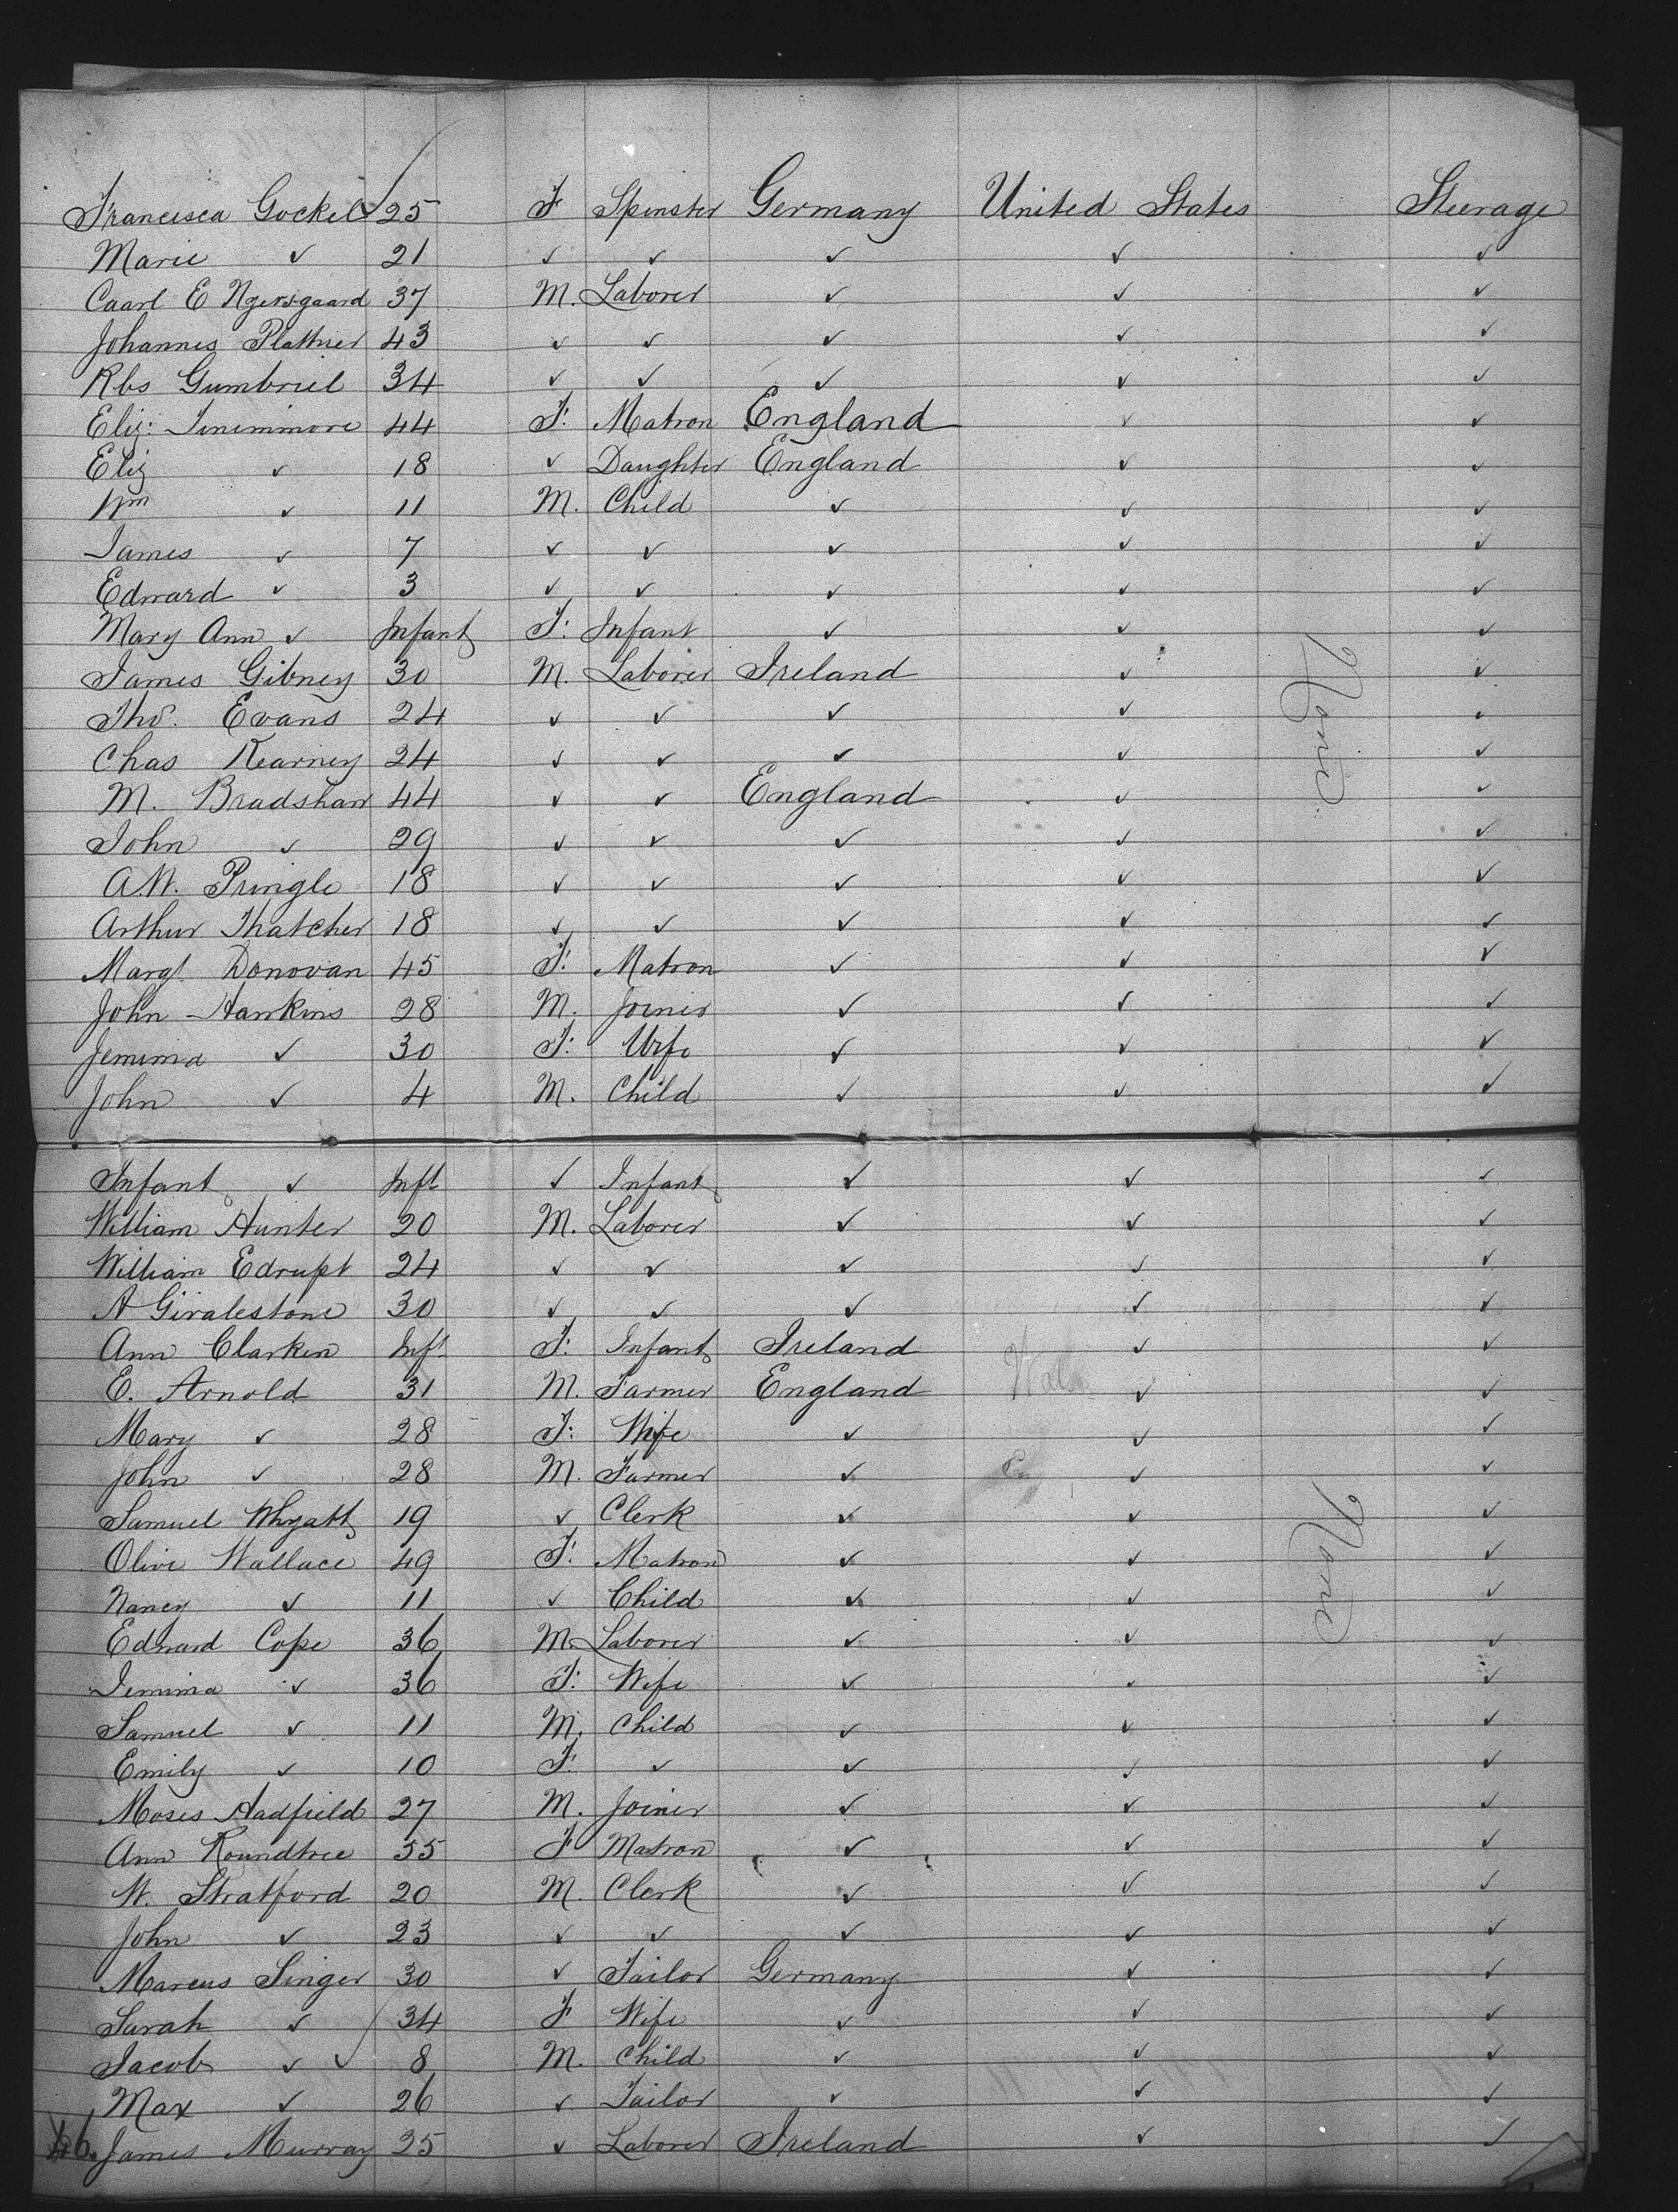 Francisca Gockel 25 F Spinster Germany United States Steerage
Marie ✓ 21 ✓ ✓ ✓ ✓ ✓
Caarl E 37 M. Laborer ✓ ✓ ✓
Johannes Plattner 43 ✓ ✓ ✓ ✓ ✓
Rbs Gumbriel 34 ✓ ✓ ✓ ✓ ✓
Eliz: 44 F. Matron England ✓ ✓
Eliz ✓ 18 ✓ Daughter England ✓ ✓
Wm ✓ 11 M. Child ✓ ✓ ✓
James ✓ 7 ✓ ✓ ✓ ✓ ✓
Edward ✓ 3 ✓ ✓ ✓ ✓ ✓
Mary Ann ✓ Infant F: Infant ✓ ✓ ✓
James Gibney 30 M. Laborer Ireland ✓ ✓
Thos. Evans 24 ✓ ✓ ✓ ✓ ✓
Chas Kearney 24 ✓ ✓ ✓ ✓ ✓
M. Bradshaw 44 ✓ ✓ England ✓ ✓
John ✓ 29 ✓ ✓ ✓ ✓ ✓
A.W. Pringle 18 ✓ ✓ ✓ ✓ ✓
Arthur Thatcher 18 ✓ ✓ ✓ ✓ ✓
Margt Donovan 45 F. Matron ✓ ✓ ✓
John Hawkins 28 M. Joiner ✓ ✓ ✓
Jemima ✓ 30 F: Wife ✓ ✓ ✓
John ✓ 4 M. Child ✓ ✓ ✓
None
Infant ✓ Inft ✓ Infant ✓ ✓ ✓
William Hunter 20 M. Laborer ✓ ✓ ✓
William Edrupt 24 ✓ ✓ ✓ ✓ ✓
A Giralestone 30 ✓ ✓ ✓ ✓ ✓
Ann Clarken Inft F: Infant Ireland ✓ ✓
E. Arnold 31 M. Farmer England ✓ ✓
Mary ✓ 28 F: Wife ✓ ✓ ✓
John ✓ 28 M. Farmer ✓ ✓ ✓
Samuel Whyatt 19 ✓ Clerk ✓ ✓ ✓
Olive Wallace 49 F. Matron ✓ ✓ ✓
Nancy ✓ 11 ✓ Child ✓ ✓ ✓
Edward Cope 36 M. Laborer ✓ ✓ ✓
Jemima ✓ 36 F: Wife ✓ ✓ ✓
Samuel ✓ 11 M. Child ✓ ✓ ✓
Emily ✓ 10 F. ✓ ✓ ✓ ✓
Moses Hadfield 27 M. Joiner ✓ ✓ ✓
Ann Roundtree 55 F Matron ✓ ✓ ✓
W. Stratford 20 M. Clerk ✓ ✓ ✓
John ✓ 23 ✓ ✓ ✓ ✓ ✓
Marcus Singer 30 ✓ Tailor Germany ✓ ✓
Sarah ✓ 34 F Wife ✓ ✓ ✓
Jacob ✓ 8 M. Child ✓ ✓ ✓
Max ✓ 26 ✓ Tailor ✓ ✓ ✓
46. James Murray 25 ✓ Laborer Ireland ✓ ✓
None